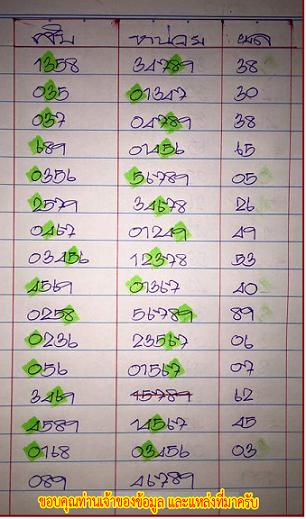 สิบ หน่วย ผล
1358 34789 38
035 01347 30
037 04789 38
689 01456 65
0356 56789 05
2579 34678 26
0467 01249 49
03456 12378 53
4569 01367 40
0258 56789 89
0236 23567 06
056 01567 07
3469 15789 62
4589 14567 45
0168 03456 03
089 46789
ขอบคุณท่านเจ้าของข้อมูล และแหล่งที่มาครับ